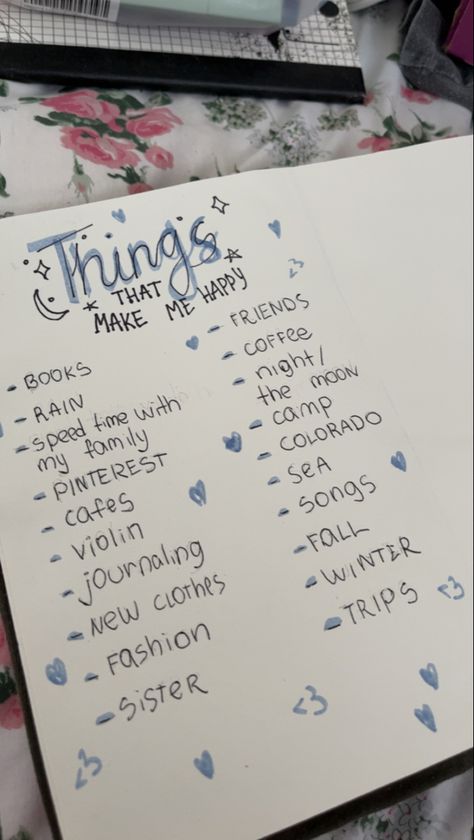 Things
THAT
MAKE ME HAPPY
- BOOKS
- RAIN
- speed time with
my family
- PINTEREST
- cafes
- violin
- journaling
- NEW CLOTHES
- FASHION
- SISTER
- FRIENDS
- COFFEE
- night/
the moon
- camp
- COLORADO
- SEA
- songs
- FALL
- WINTER
- TRIPS
<3
<3
<3
<3